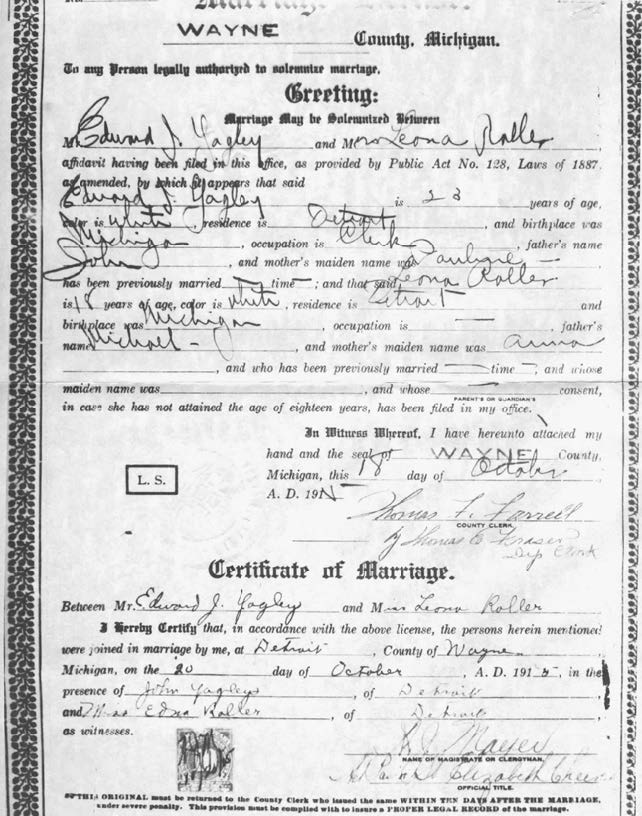 Marriage License
WAYNE County, Michigan.
To any Person legally authorized to solemnize marriage,
Greeting:
Marriage May be Solemnized Between
Mr. Edward J. Yagley and Miss Leona Roller
affidavit having been filed in this office, as provided by Public Act No. 128, Laws of 1887,
as amended, by which it appears that said
Edward J. Yagley is 23 years of age,
color is white, residence is Detroit, and birthplace was
Michigan, occupation is Clerk, father's name
John, and mother's maiden name was Pauline —
has been previously married — time —; and that said Leona Roller
is 18 years of age, color is white, residence is Detroit and
birthplace was Michigan, occupation is —, father's
name Michael —, and mother's maiden name was Anna
, and who has been previously married — time —, and whose
maiden name was, and whose consent,
PARENT'S OR GUARDIAN'S
in case she has not attained the age of eighteen years, has been filed in my office.
In Witness Whereof, I have hereunto attached my
hand and the seal of WAYNE County,
Michigan, this 18 day of October
L. S.
A. D. 191
Thomas F. Farrell
COUNTY CLERK.
By Thomas C. Fraser
Dep Clerk
Certificate of Marriage.
Between Mr. Edward J. Yagley and Miss Leona Roller
I Hereby Certify that, in accordance with the above license, the persons herein mentioned
were joined in marriage by me, at Detroit, County of Wayne
Michigan, on the 20 day of October, A. D. 1915, in the
presence of John Yagley, of Detroit
and Miss Edna Roller, of Detroit
as witnesses.
Mayer
NAME OF MAGISTRATE OR CLERGYMAN.
Elizabeth
OFFICIAL TITLE.
THIS ORIGINAL must be returned to the County Clerk who issued the same WITHIN TEN DAYS AFTER THE MARRIAGE,
under severe penalty. This provision must be complied with to insure a PROPER LEGAL RECORD of the marriage.